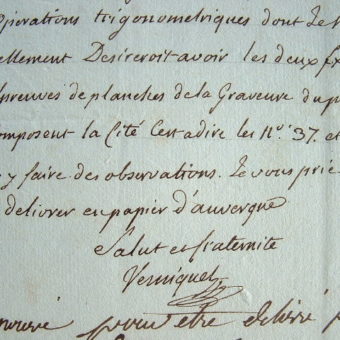 opérations trigonometriques dont le
ellement Desireroit avoir les deux
Epreuves de planches de la Graveure du
omposent la Cité Cest adire les Nos. 37. et
y faire des observations. Je vous prie
deliver en papier d'auvergne
Salut et fraternité
Verniquet
pour être délivré